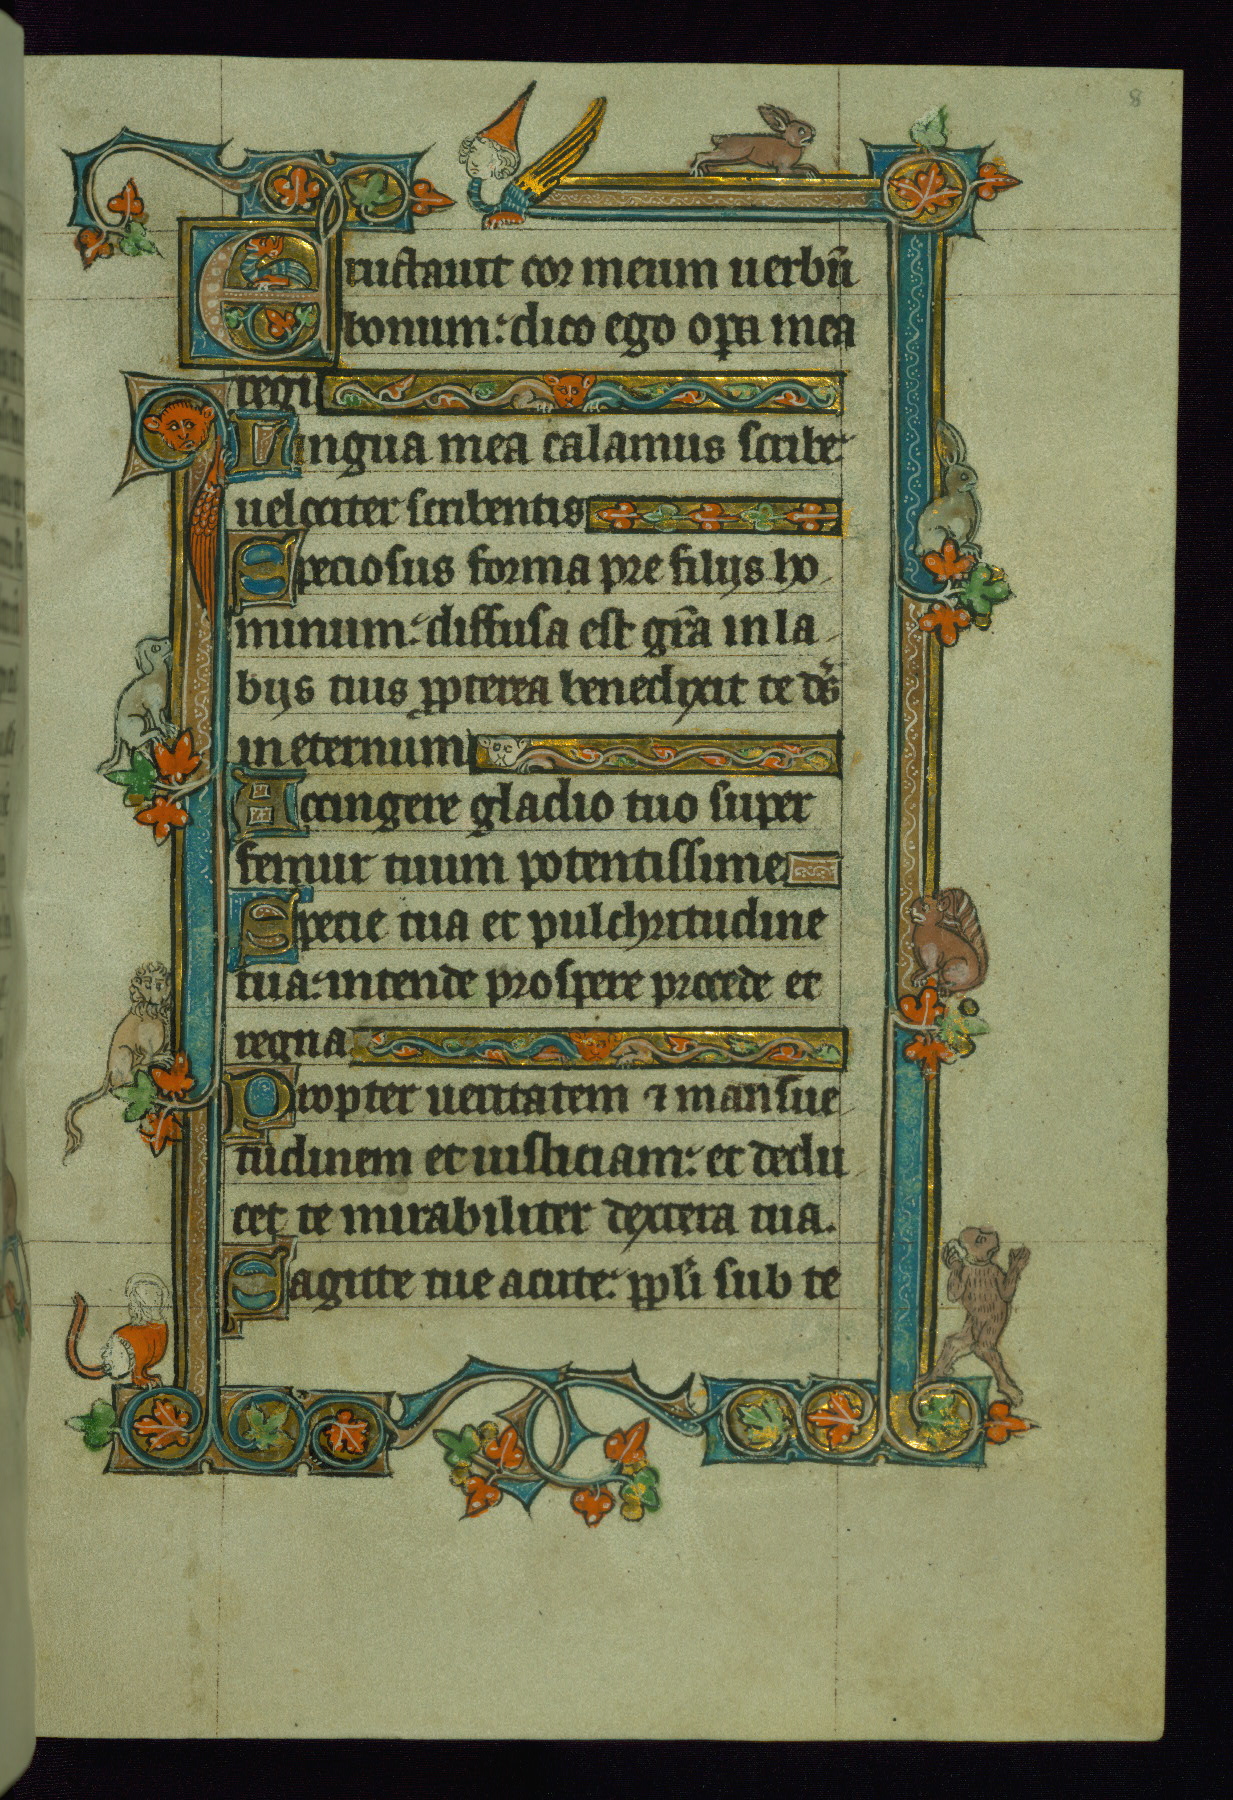 8
Eructauit cor meum uerbū
bonum: dico ego opa mea
regi
Lingua mea calamus scribe
uelociter scribentis
Speciosus forma pre filijs ho
minum: diffusa est grā in la
bijs tuis ppterea benedixit te ds̄
in eternum
Accingere gladio tuo super
femur tuum potentissime
Specie tua et pulchritudine
tua: intende prospere procede et
regna
Propter ueritatem ⁊ mansue
tudinem et iusticiam: et dedu
cet te mirabiliter dextera tua.
Sagitte tue acute: ppli sub te